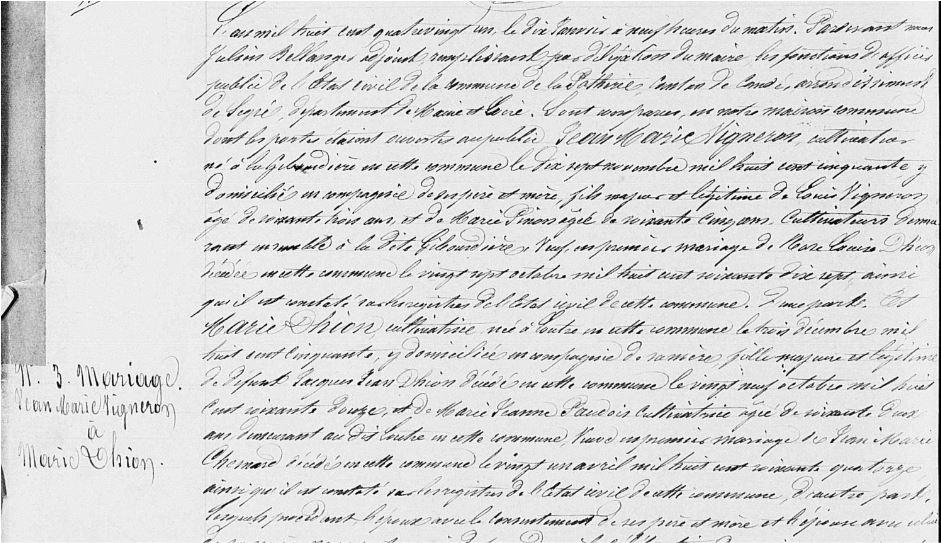 L'an mil huit cent quatre vingt un, le dix Janvier à neuf heures du matin. Pardevant nous
Julien Bellanger adjoint, remplissant par délégation du maire, les fonctions d'officier
public de l'Etat civil de la commune de la Potherie, canton de Candé, arrondissement
de Segré, département de Maine et Loire. Sont comparus, en notre maison commune
dont les portes étaient ouvertes au public, Jean Marie Vigneron, cultivateur
né à la Gibaudière en cette commune le dix sept novembre mil huit cent cinquante y
domicilié en compagnie de ses père et mère, fils majeur et légitime de Louis Vigneron
âgé de soixante trois ans, et de Marie Pinon âgée de soixante cinq ans. Cultivateurs demeu
rant ensemble à la dite Gibaudière, Veuf en premier mariage de Rose Louise Dhion
décédée en cette commune le vingt sept octobre mil huit cent soixante dix sept, ainsi
qu'il est constaté sur les registres de l'Etat civil de cette commune. D'une part. Et
Marie Dhion cultivatrice, née à en cette commune le trois décembre mil
huit cent cinquante, y domiciliée en compagnie de sa mère, fille majeure et légitime
de défunt Jacques Jean Dhion décédé en cette commune le vingt neuf octobre mil huit
cent soixante douze, et de Marie Jeanne cultivatrice âgée de soixante deux
ans demeurant au dit en cette commune, Veuve en premier mariage de Jean Marie
décédé en cette commune le vingt un avril mil huit cent soixante quatorze
ainsi qu'il est constaté sur les registres de l'Etat civil de cette commune, d'autre part.
Lesquels procédant l'époux avec le consentement de ses père et mère et l'épouse avec celui
N. 3. Mariage.
Jean Marie Vigneron
à
Marie Dhion.